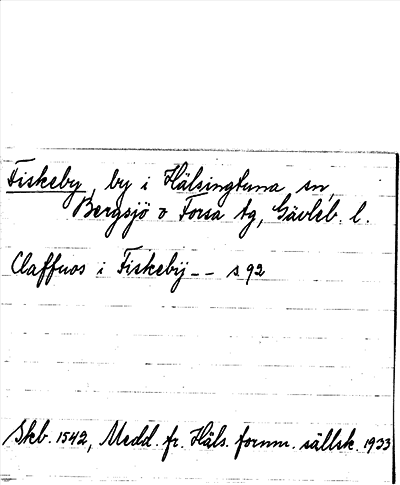 Fiskeby, by i Hälsingtuna sn,
Bergsjö o Forsa tg, Gävleb. l.
Claffuos i Fiskebÿ - - s 92
Skb. 1542, Medd. fr. Häls. fornm. sällsk. 1933